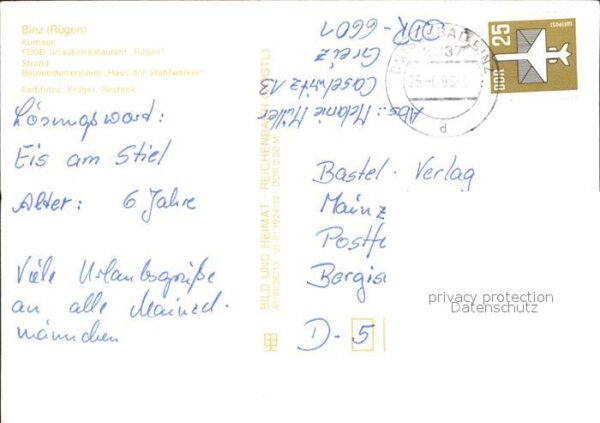 Binz (Rügen)
Kurhaus
FDGB-Urlauberrestaurant "Rügen"
Strand
Betriebsferienheim "Haus der Stahlwerker"
Farbfotos: Krüger, Rostock
Lösungswort:
Eis am Stiel
Alter: 6 Jahre
Viele Urlaubsgrüße
an alle Mainzel-
männchen
BILD UND HEIMAT · REICHENBACH (VOGTL)
01 01 1924/12 · DDR 0,20 M
Abs.: Melanie Müller
Caselwitz 13
Greiz
DDR-6601
25
DDR
LUFTPOST
2337
d
Bastei-Verlag
Mainz
Postf
Bergis
D-5
privacy protection
Datenschutz